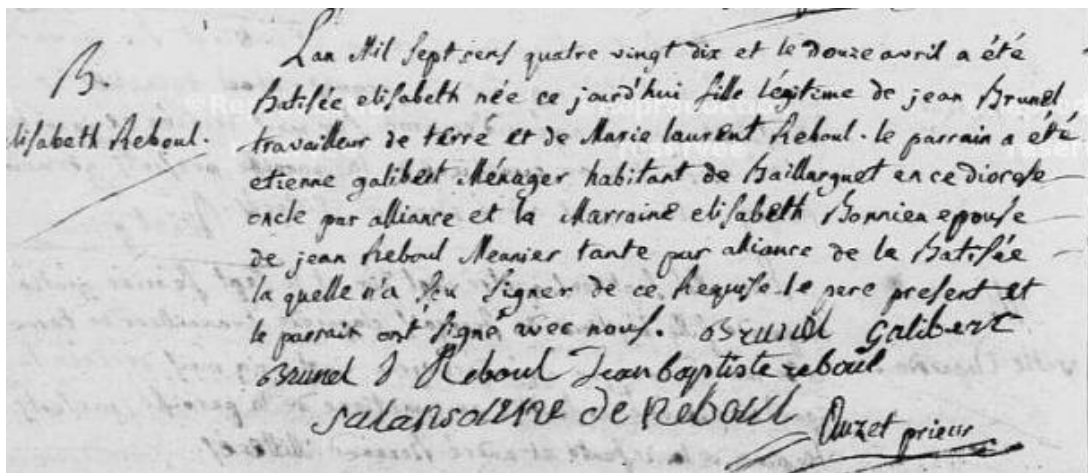 Lan Mil Sept sens quatre vingt dix et le Douze avril a été
B.
Batisée elisabeth née ce jourd'hui fille légitime de jean Brunel
elisabeth Reboul.
travailleur de terre et de Marie laurent Reboul. le parrain a été
etienne galibert Ménager habitant de Baillarguet en ce diocese
oncle par alliance et la Marraine elisabeth Bonnieu epouse
de jean Reboul Meunier tante par alliance de la Batisée
la quelle n'a seu signer de ce Requise le pere present et
le parrain ont signé avec nous. Brunel galibert
Brunel J Reboul Jean baptiste reboul.
de Reboul
Auzet prieur